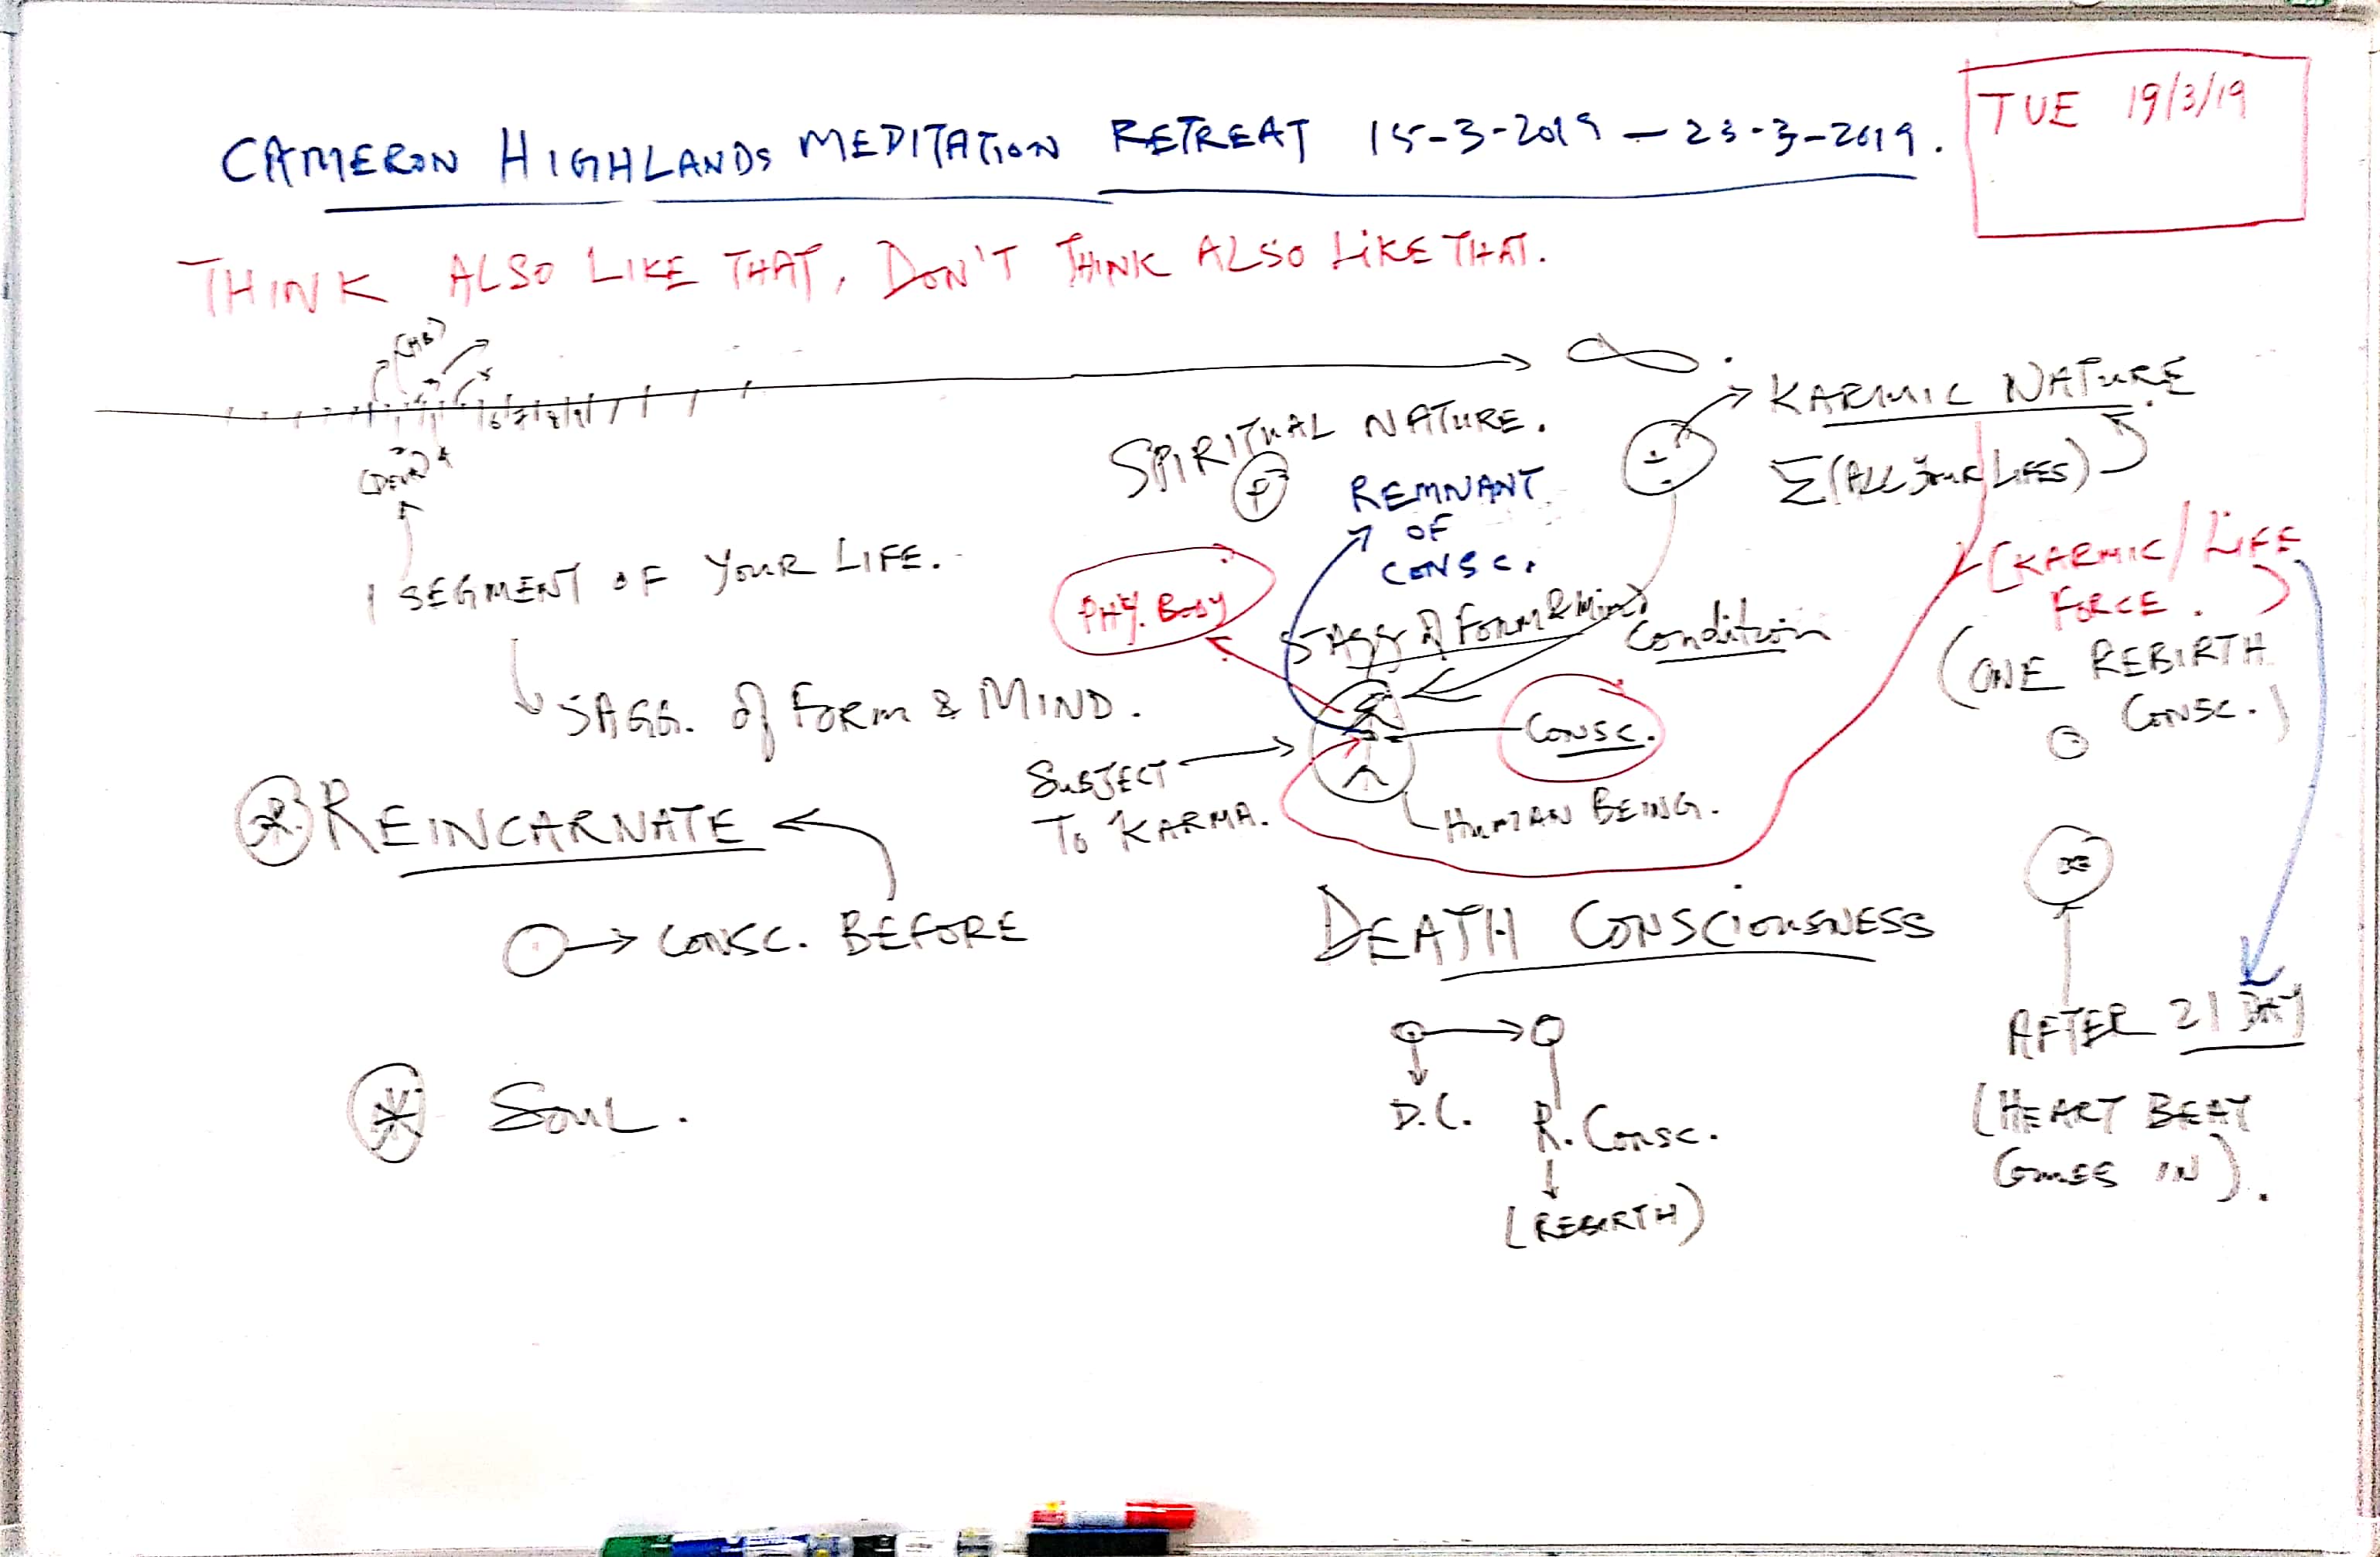 CAMERON HIGHLANDS MEDITATION RETREAT 15-3-2019 — 23-3-2019.
TUE 19/3/19
THINK ALSO LIKE THAT, DON'T THINK ALSO LIKE THAT.
∞.
(HB)
6 7 8 9
(DEVA)
1 SEGMENT OF YOUR LIFE.
5 AGG. of FORM & MIND.
SPIRITUAL NATURE.
REMNANT
OF
CONSC.
KARMIC NATURE.
Σ(ALL YOUR LIFES)
[KARMIC/LIFE
FORCE.
(ONE REBIRTH
CONSC.)
PHY. BODY
5 AGG of FORM & Mind
Condition
CONSC.
SUBJECT
TO KARMA.
HUMAN BEING.
REINCARNATE
CONSC. BEFORE
SOUL.
DEATH CONSCIOUSNESS
D.C.
R. CONSC.
(REBIRTH)
AFTER 21 DAY
(HEART BEAT
COMES IN).